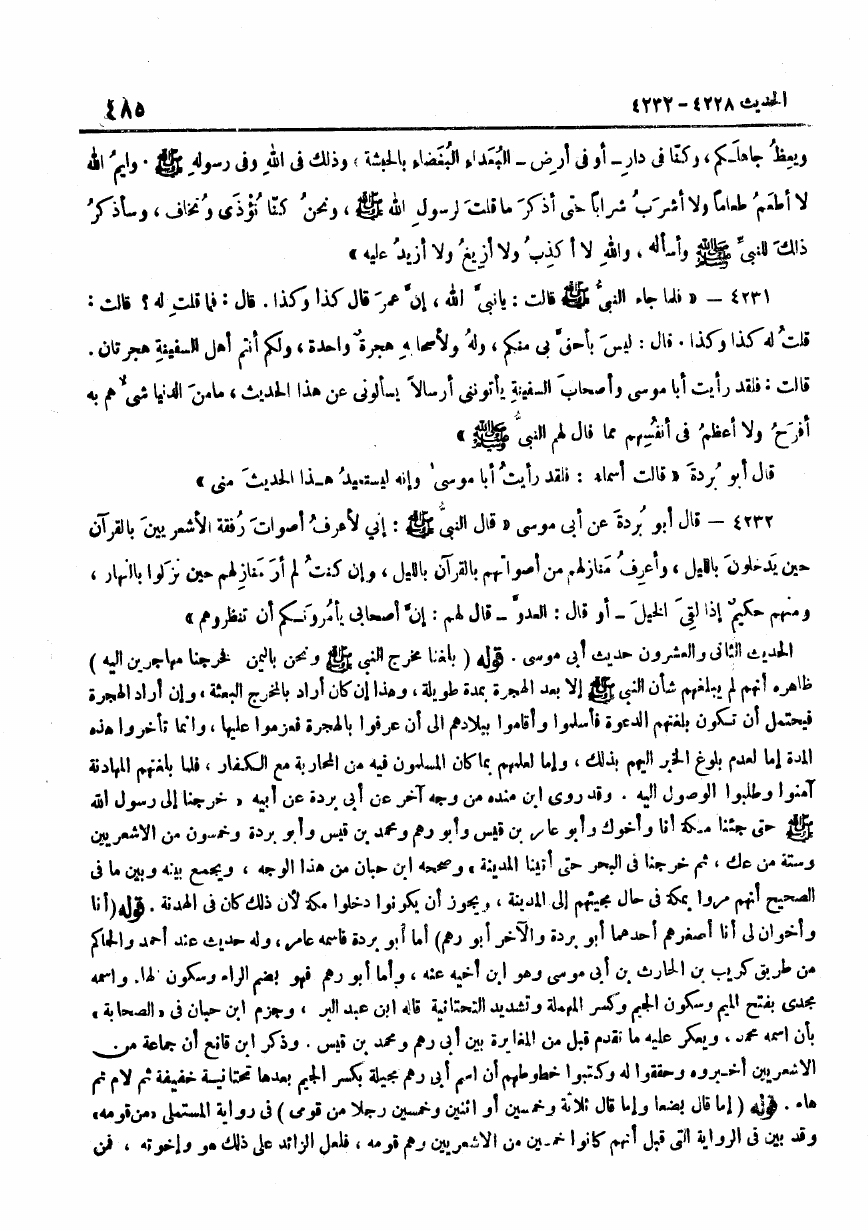 الحديث ٤٢٢٨ – ٤٢٣٢
٤٨٥
ويعِظُ جاهلَـكم، وكنّا فى دارِ ـ أو فى أرضِ ـ البُعَداءِ البُغَضاءِ بالحبشة ؛ وذلك فى اللهِ وفى رسولهِ ﷺ . وايمُ اللهِ
لا أطعَمُ طعاماً ولا أشرَبُ شراباً حتى أذكرَ ما قلتَ لرسولِ الله ﷺ ، ونحنُ كنّا نُؤْذَى ونُخاف ، وسأذكرُ
ذلكَ للنبىِّ ﷺ وأسأله ، واللهِ لا أكذِبُ ولا أزِيغُ ولا أزيدُ عليه »
٤٢٣١ – « فلما جاء النبىُّ ﷺ قالت : يانبىَّ الله ، إنَّ عمرَ قال كذا وكذا . قال : فما قلتِ له ؟ قالت :
قلتُ له كذا وكذا . قال : ليسَ بأحقَّ بى منكم ، ولهُ ولأصحابهِ هجرةٌ واحدة ، ولكم أنتم أهلَ السفينةِ هجرتان .
قالت : فلقد رأيت أبا موسى وأصحابَ السفينةِ يأتوننى أرسالاً يسألونى عن هذا الحديث ، مامنَ الدنيا شىءٌ هم به
أفرَحُ ولا أعظمُ فى أنفُسِهم مما قال لهم النبىُّ ﷺ »
قال أبو بُردةَ « قالت أسماء : فلقد رأيتُ أبا موسىٰ وإنه ليستعيدُ هـذا الحديثَ منى »
٤٢٣٢ – قال أبو بُردةَ عن أبى موسى « قال النبىُّ ﷺ : إني لأعرفُ أصواتَ رُفقة الأشعريينَ بالقرآن
حين يَدخلونَ بالليل ، وأعرِفُ مَنازلهم من أصواتهم بالقرآن بالليل ، وإن كنتُ لم أرَ مَنازلهم حين نزَلوا بالنهار ،
ومنهم حكيمٌ إذا لقِىَ الخيلَ ـ أو قال : العدوَّ ـ قال لهم : إنَّ أصحابى يأمُرونَـكم أن تنظروهم »
الحديث الثانى والعشرون حديث أبى موسى . قوله ( بلغنا مخرج النبى ﷺ ونحن باليمن فخرجنا مهاجرين اليه )
ظاهره أنهم لم يبلغهم شأن النبى ﷺ إلا بعد الهجرة بمدة طويلة ، وهذا إن كان أراد بالمخرج البعثة ، وإن أراد الهجرة
فيحتمل أن تـكون بلغتهم الدعوة فأسلموا وأقاموا ببلادهم الى أن عرفوا بالهجرة فعزموا عليها ، وانما تأخروا هذه
المدة إما لعدم بلوغ الخبر اليهم بذلك ، وإما لعلمهم بما كان المسلمون فيه من المحاربة مع الـكفار ، فلما بلغتهم المهادنة
آمنوا وطلبوا الوصول اليه . وقد روى ابن منده من وجه آخر عن أبى بردة عن أبيه « خرجنا إلى رسول الله
ﷺ حتى جئنا مـكة أنا وأخوك وأبو عامر بن قيس وأبو رهم ومحمد بن قيس وأبو بردة وخمسون من الاشعريين
وستة من عك ، ثم خرجنا فى البحر حتى أتينا المدينة » وصححه ابن حبان من هذا الوجه ، ويجمع بينه وبين ما فى
الصحيح أنهم مروا بمكة فى حال مجيئهم إلى المدينة ، ويجوز أن يكونوا دخلوا مكة لأن ذلك كان فى الهدنة . قوله (أنا
وأخوان لى أنا أصغرهم أحدهما أبو بردة والآخر أبو رهم) أما أبو بردة فاسمه عامر ، وله حديث عند أحمد والحاكم
من طريق كريب بن الحارث بن أبى موسى وهو ابن أخيه عنه ، وأما أبو رهم فهو بضم الراء وسكون الهاء واسمه
مجدى بفتح الميم وسكون الجيم وكسر المهملة وتشديد التحتانية قاله ابن عبد البر ، وجزم ابن حبان فى «الصحابة»
بأن اسمه محمد ، ويعكر عليه ما تقدم قبل من المغايرة بين أبى رهم ومحمد بن قيس . وذكر ابن قانع أن جماعة من
الاشعريين أخـبروه وحققوا له وكتبوا خطوطهم أن اسم أبى رهم مجيلة بكسر الجيم بعدها تحتانيـة خفيفة ثم لام ثم
هاء . قوله ( إما قال بضعا وإما قال ثلاثة وخمسين أو اثنين وخمسين رجلا من قومى ) فى رواية المستملى «من قومه»
وقد بين فى الرواية التى قبل أنهم كانوا خمسين من الاشعريين وهم قومه ، فلعل الزائد على ذلك هو وإخوته ، فمن